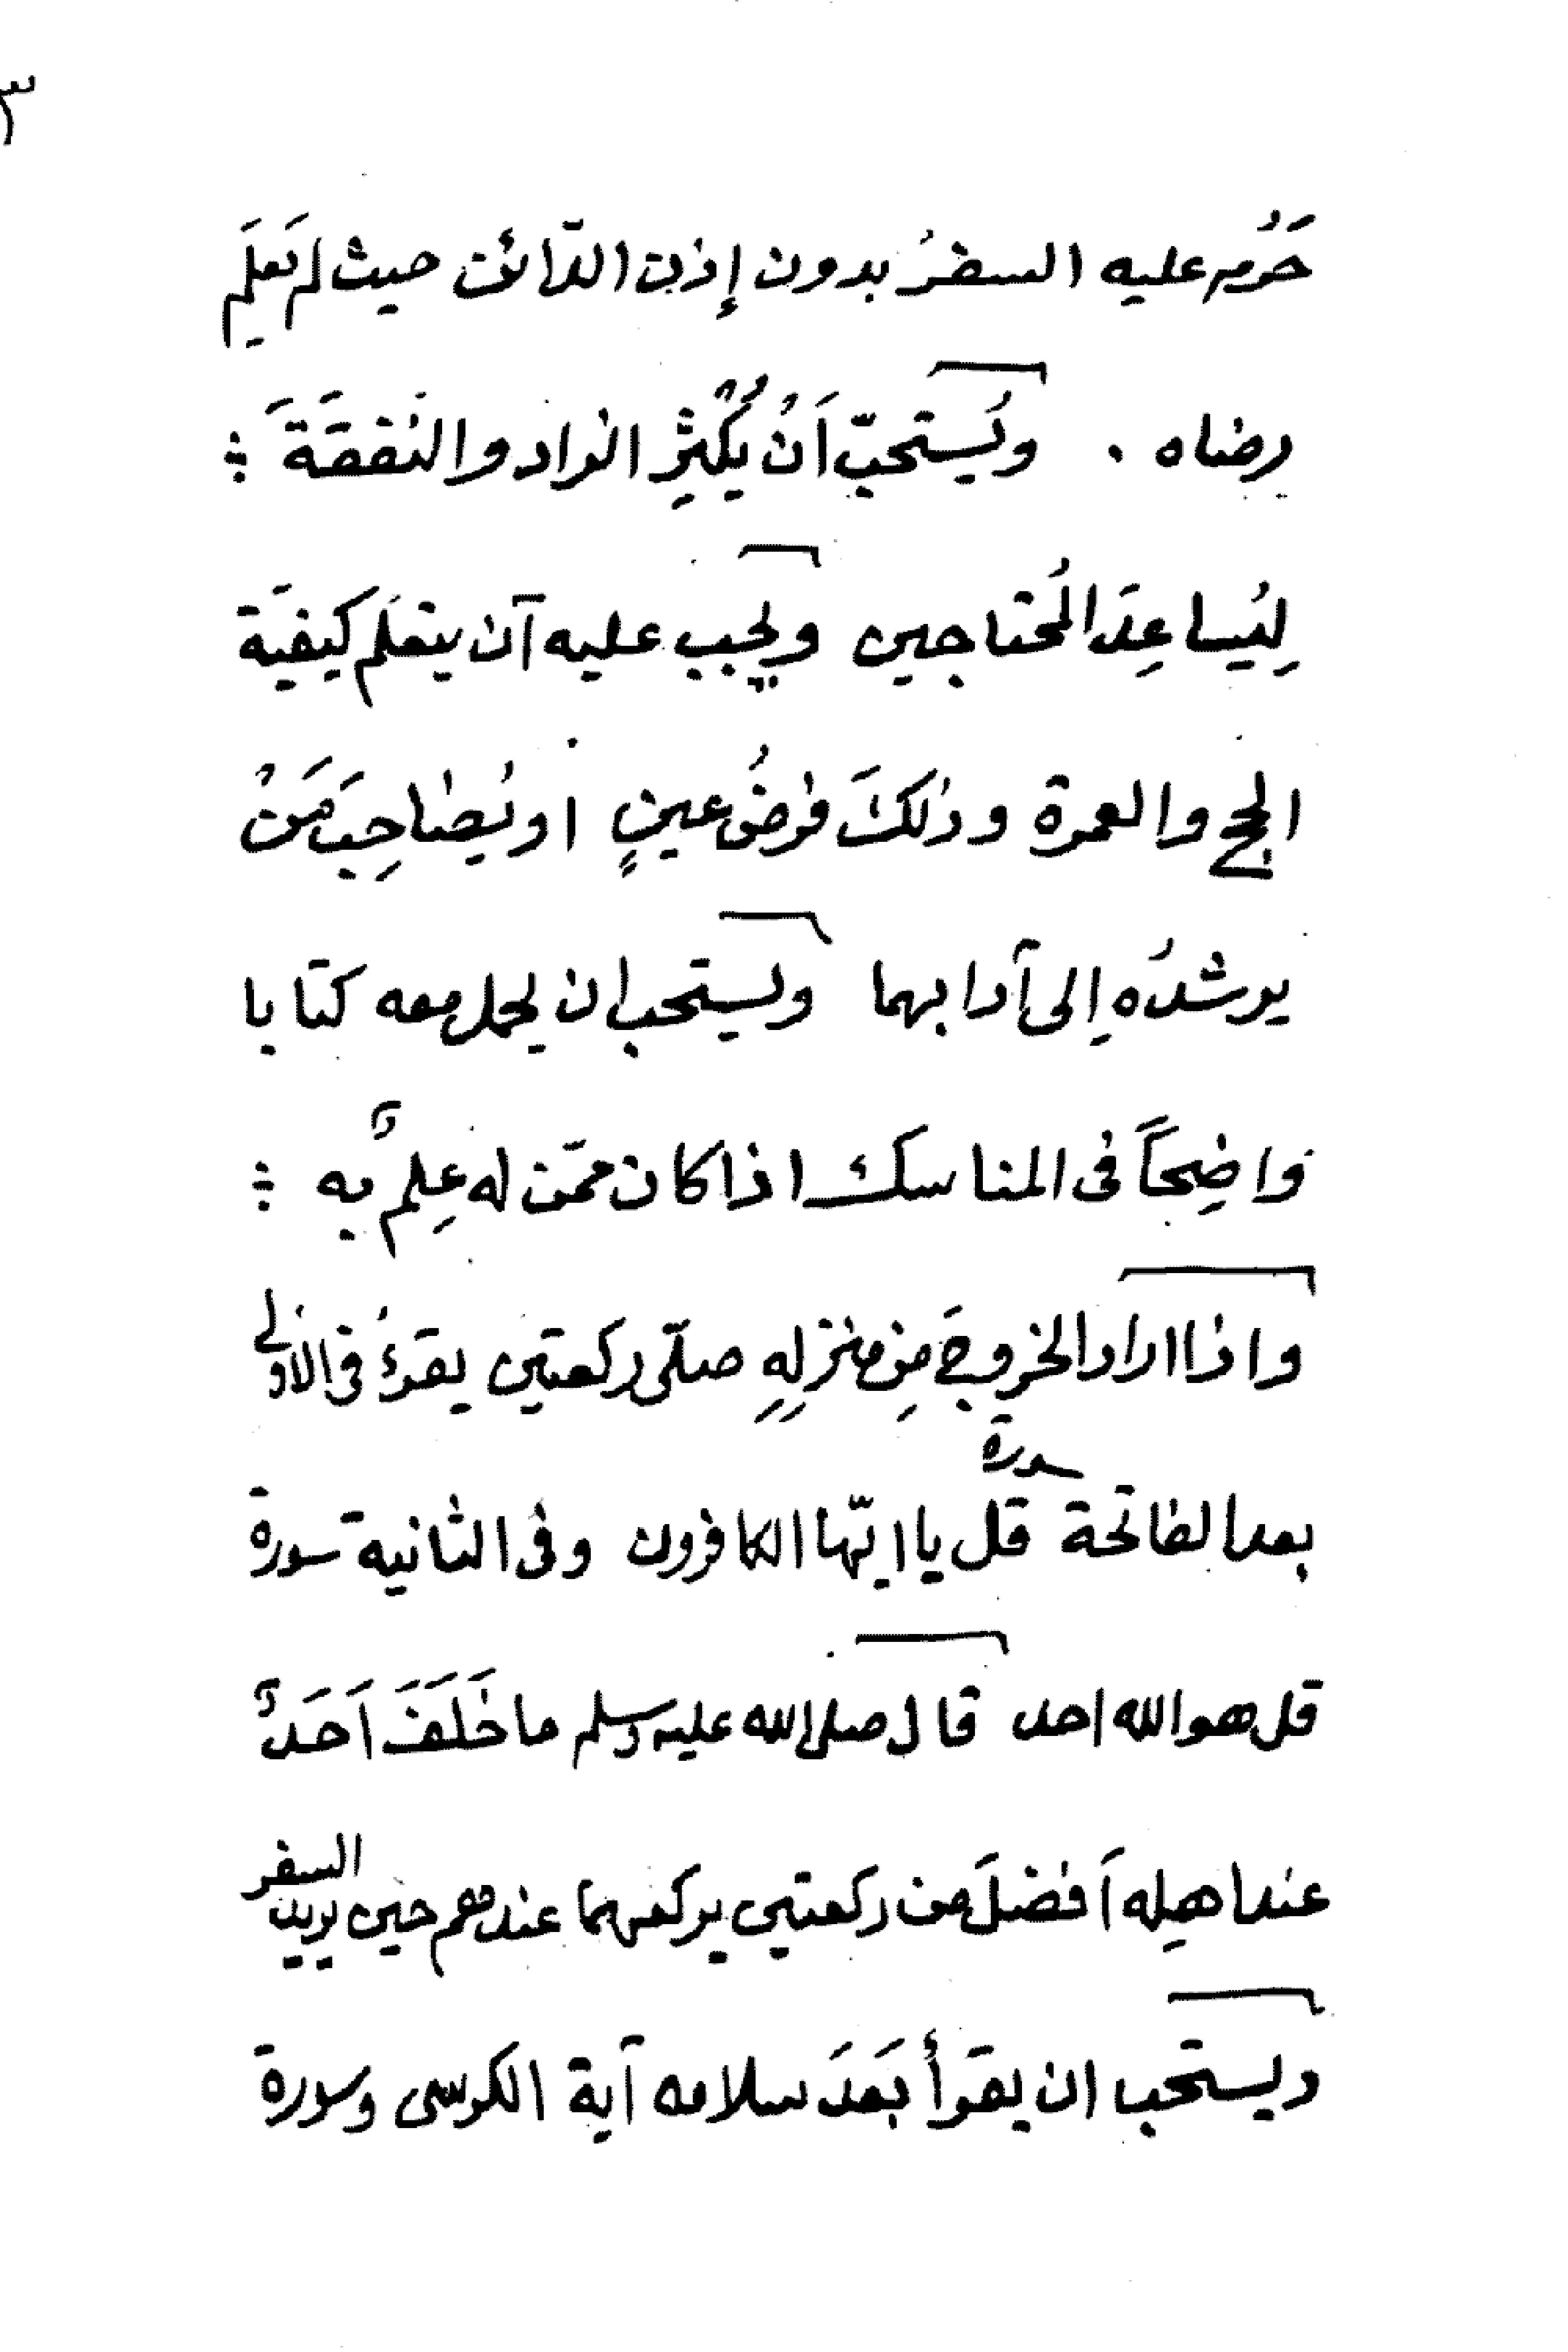 ٣
حَرُم عليه السفرُ بدون إذن الدّائن حيث لم يَعلَم
رضاه . ويُستحبّ اَنْ يُكْثِرَ الزاد والنفقَةَ :
لِيُساعِدَ المُحتاجين ويجب عليه آن يتعلَم كيفيَة
الحج والعمرة وذلكَ فرضُ عينٍ او يُصَاحِبَ مَنْ
يرشدُه إلى آدابهما ويستحب ان يحمل معه كتابا
وَاضِحاً فى المناسك اذا كان ممّن له عِلمٌ به :
واذا اراد الخروجَ مِن منزلِهِ صلّى ركعتين يقرءُ فى الاولى
بعد الفاتحة سورة قل يا ايّها الكافرون وفى الثانية سورة
قل هو الله احد قال صلى الله عليه وسلم ما خَلَفَ اَحَدٌ
عند اهلِه اَفضلَ من ركعتين يركعهما عندهم حين يريد السفر
ويستحب ان يقرأ بَعدَ سلامه آية الكرسى وسورة